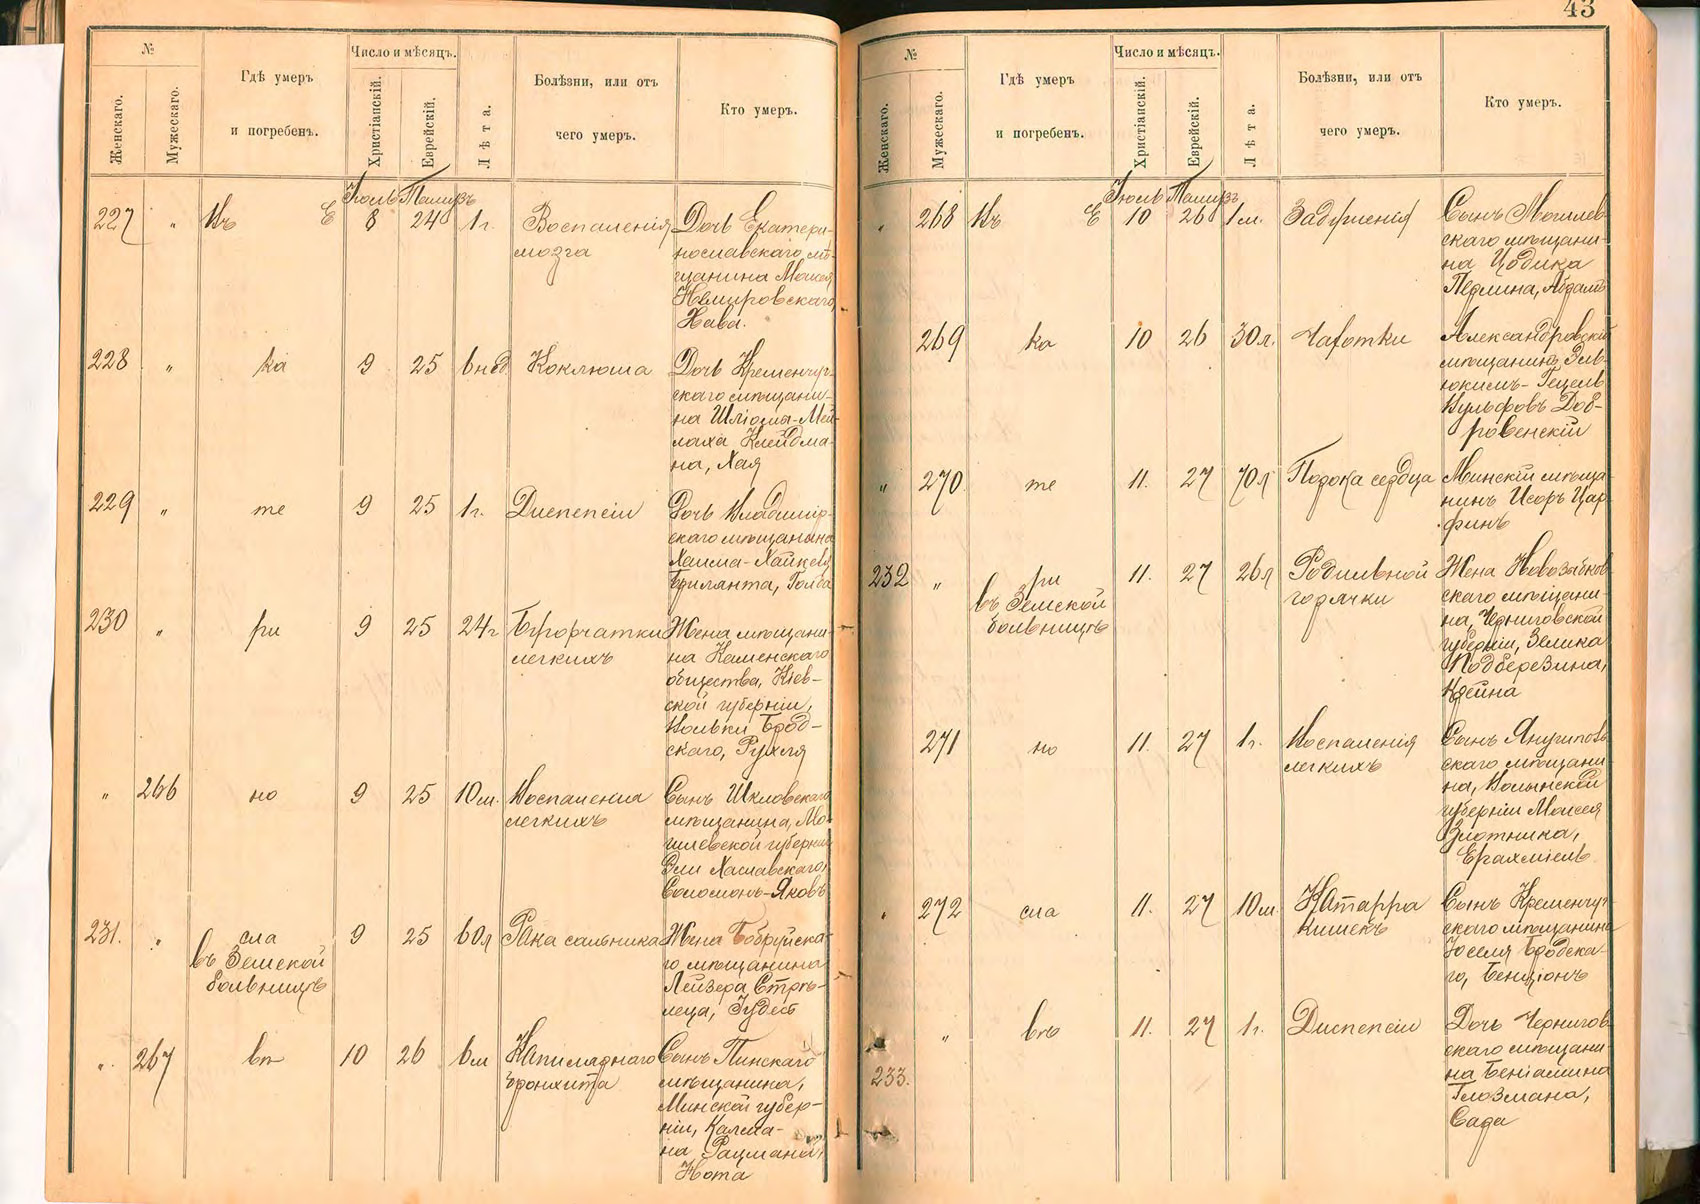 43
№
Женскаго.
Мужескаго.
Гдѣ умеръ
и погребенъ.
Число и мѣсяцъ.
Христіанскій.
Еврейскій.
Лѣта.
Болѣзни, или отъ
чего умеръ.
Кто умеръ.
Іюль Тамузъ
227 " Въ Е 8 24 1 г. Воспаленія
мозга
Дочь Екатери-
нославскаго мѣ-
щанина Моисея
Немировскаго,
Хава.
228 " ка 9 25 6 нед. Коклюша
Дочь Кременчуг-
скаго мѣщани-
на Шліома-Мей-
лаха Клейдма-
на, Хая
229 " те 9 25 1 г. Диспепсіи
Дочь Владимир-
скаго мѣщанина
Хаима-Хайкеля
Брилянта, Голда
230 " ри 9 25 24 г. Бугорчатки
легкихъ
Жена мѣщани-
на Каменскаго
общества, Кіев-
ской губерніи,
Вольки Брод-
скаго, Рухля
" 266 но 9 25 10 м. Воспаленія
легкихъ
Сынъ Шкловскаго
мѣщанина, Мо-
гилевской губерніи
Эли Хаславскаго,
Соломонъ-Яковъ
231. " сла
въ Земской
больницѣ
9 25 60 л Рака сальника
Жена Бобруйска-
го мѣщанина
Лейзера Стрѣль-
леца, Іудесъ
" 267 вѣ 10 26 6 м Капилярнаго
бронхита
Сынъ Пинскаго
мѣщанина,
Минской губер-
ніи, Калма-
на Рацмана,
Нота
№
Женскаго.
Мужескаго.
Гдѣ умеръ
и погребенъ.
Число и мѣсяцъ.
Христіанскій.
Еврейскій.
Лѣта.
Болѣзни, или отъ
чего умеръ.
Кто умеръ.
Іюль Тамузъ
" 268 Въ Е 10 26 1 м. Задушенія
Сынъ Могилев-
скаго мѣщани-
на Цодика
269 ка 10 26 30 л. Чахотки
Александровскій
мѣщанинъ Эль-
юкимъ-Гецель
Вульфовъ Доб-
ровенскій
" 270 те 11. 27 70 л Порока сердца
Минскій мѣща-
нинъ Исоръ Цар-
финъ
232 " ри
въ Земской
больницѣ
11. 27 26 л Родильной
горячки
Жена Новозыбков-
скаго мѣщани-
на, Черниговской
губерніи, Зелика
Подберезина,
Крейна
271 но 11. 27 1 г. Воспаленія
легкихъ
Сынъ
скаго мѣщани-
на, Волынской
губерніи Моисея
Злотника,
Ерахміель
" 272 сла 11. 27 10 м Катарра
кишекъ
Сынъ Кременчуг-
скаго мѣщанина
Іоселя Бродска-
го, Бенціонъ
233. " вѣ 11. 27 1 г. Диспепсіи
Дочь Чернигов-
скаго мѣщани-
на Беніамина
Глозмана,
Сада